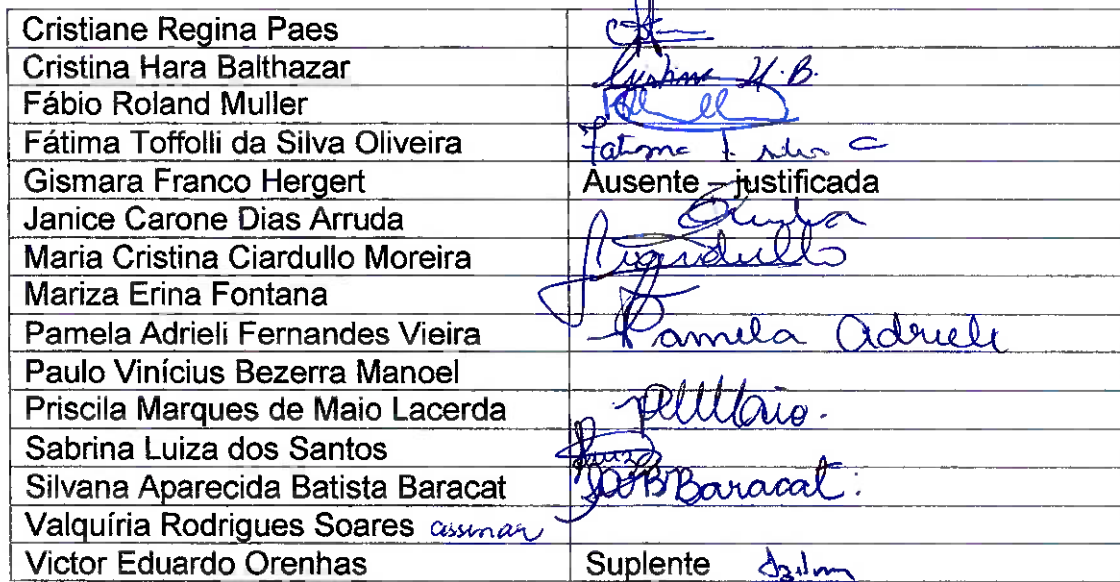 Cristiane Regina Paes
Cristina Hara Balthazar Cristina H.B.
Fábio Roland Muller
Fátima Toffolli da Silva Oliveira Fatima T. silva
Gismara Franco Hergert Ausente – justificada
Janice Carone Dias Arruda
Maria Cristina Ciardullo Moreira Ciardullo
Mariza Erina Fontana
Pamela Adrieli Fernandes Vieira Pamela Adrieli
Paulo Vinícius Bezerra Manoel
Priscila Marques de Maio Lacerda
Sabrina Luiza dos Santos
Silvana Aparecida Batista Baracat SABBaracat.
Valquíria Rodrigues Soares assinar
Victor Eduardo Orenhas Suplente